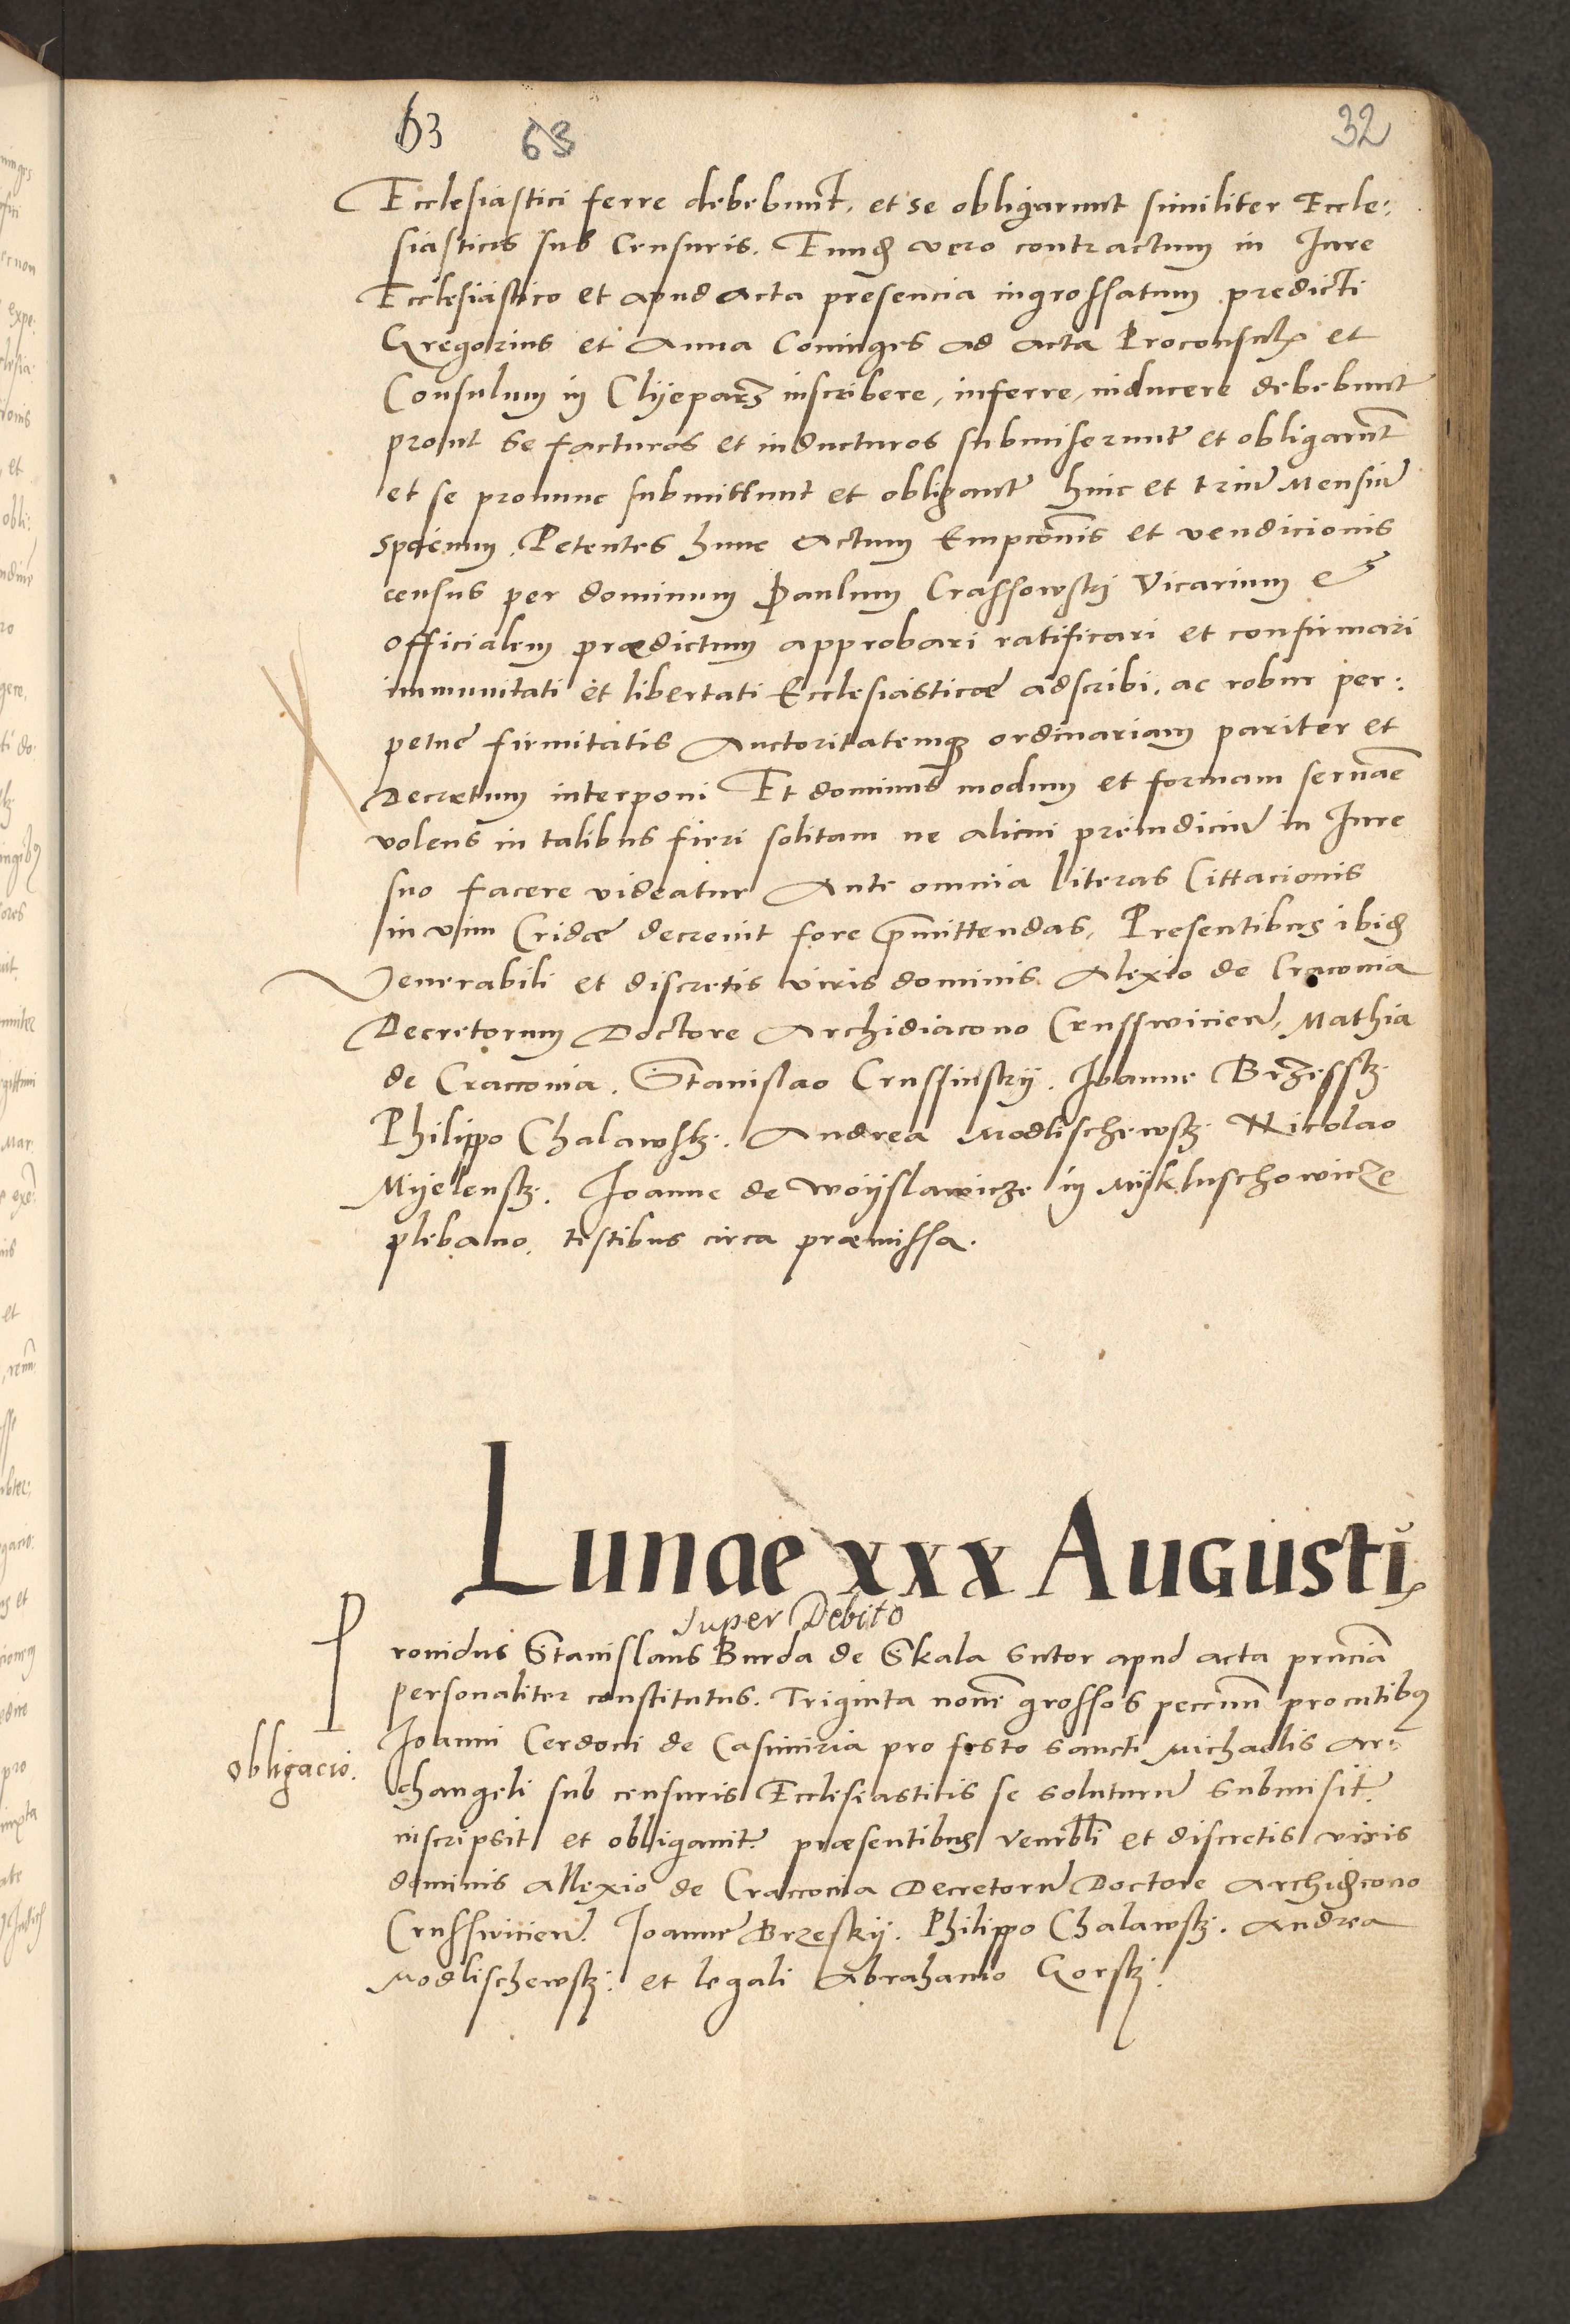 63 63 32
Ecclesiastici ferre debebunt. et se obligarunt similiter Eccle:
siasticis sub Censuris. Eund vero contractum in Iure
Ecclesiastico et apud acta presencia ingrossatum predicti
Gregorius et Anna Coniuges ad acta Proconsulis et
Consulum in Clyeparz inscribere, inferre, inducere debebunt
prout se facturos et inducturos submiserunt et obligarunt
et se pronunc submittunt et obligant hinc et triu Mensiu
spacium. Petentes hunc actum Empcōnis et vendicionis
census per dominum Paulum Crassowskj Vicarium et
officialem prædictum approbari ratificari et confirmari
immunitati et libertati Ecclesiasticæ adscribi. ac robur per:
petuę firmitatis Auctoritatemq ordinariam pariter et
Decretum interponi Et dominus modum et formam seruāe
volens in talibus fieri solitam ne alicui preiudiciu in Iure
suo facere videatur Ante omnia literas Cittacionis
in vim Cridæ decreuit fore p̄mittendas. Presentibus ibid
Venerabili et discretis viris dominis Alexio de Cracouia
Decretorum Doctore Archidiacono Crusswicien, Mathia
de Craccouia. Stanislao Crussinskij. Ioanne Brzesskj
Philippo Chalawskj. Andrea Modlischewskj Nicolao
Myelenskj. Ioanne de Woyslawicze in Myklhuschowicze
plebano, testibus circa præmissa.
Lunae xxx Augusti
Super Debito
Prouidus Stanislaus Burda de Skala sutor apud acta pruncia
personaliter constitutus. Triginta nouē grossos peccun procutibus
obligacio.
Ioanni Cerdoni de Casimiria pro festo sancti Michaelis Ar:
changeli sub censuris Ecclesiasticis se soluturu submisit
inscripsit et obligauit. præsentibus Venrbli et discretis viris
dominis Allexio de Craccouia Decretoru Doctore Archidcono
Crusswicien. Ioanne Brzeskij. Philippo Chalawskj. Andrea
Modlischewskj. et legali Abrahamo Gorskj.